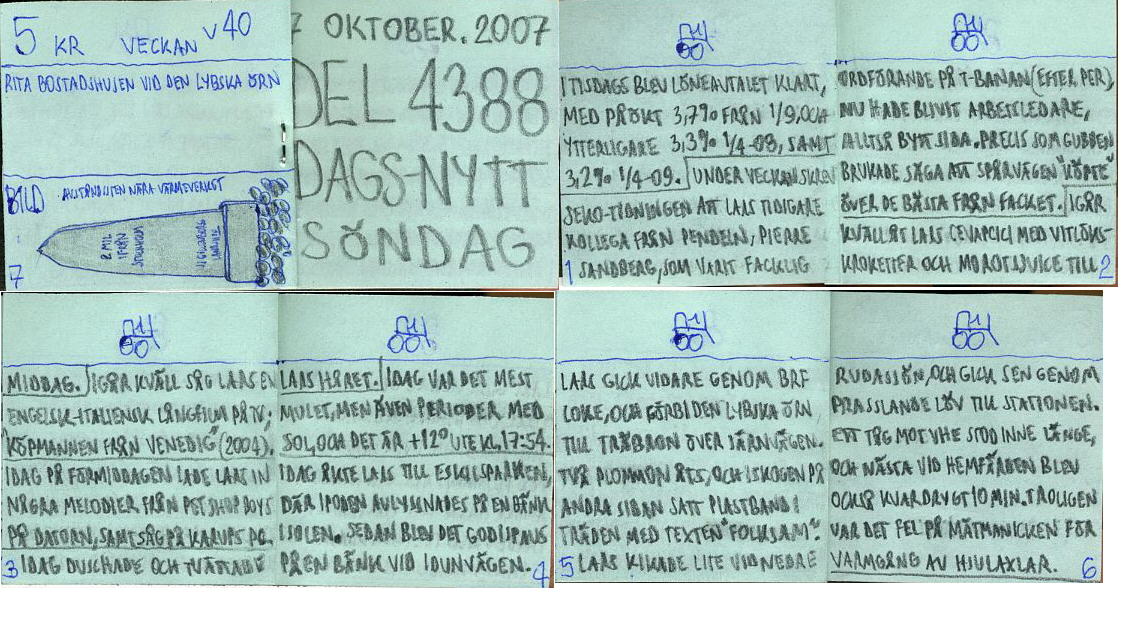 5 KR VECKAN V40
RITA BOSTADSHUSEN VID DEN LYBSKA ÖRN
BILD
2 MIL
IFRÅN
7
7 OKTOBER. 2007
DEL 4388
DAGS-NYTT
SÖNDAG
I TISDAGS BLEV LÖNEAVTALET KLART,
MED PÅÖKT 3,7% FRÅN 1/9, OCH
YTTERLIGARE 3,3% 1/4-08, SAMT
3,2% 1/4-09. UNDER VECKAN SKREV
SEKO-TIDNINGEN ATT LARS TIDIGARE
KOLLEGA FRÅN PENDELN, PIERRE
1 SANDBERG, SOM VARIT FACKLIG
ORDFÖRANDE PÅ T-BANAN (EFTER PER),
NU HADE BLIVIT ARBETSLEDARE,
ALLTSÅ BYTT SIDA. PRECIS SOM GUBBEN
BRUKADE SÄGA ATT SPÅRVÄGEN "KÖPTE"
ÖVER DE BÄSTA FRÅN FACKET. IGÅR
KVÄLL ÅT LARS CEVAPCICI MED VITLÖKS-
KROKETTER OCH MOROTSJUICE TILL 2
MIDDAG. IGÅR KVÄLL SÅG LARS EN
ENGELSK-ITALIENSK LÅNGFILM PÅ TV;
"KÖPMANNEN FRÅN VENEDIG" (2004).
IDAG PÅ FÖRMIDDAGEN LADE LARS IN
NÅGRA MELODIER FRÅN PET SHOP BOYS
PÅ DATORN, SAMT SÅG PÅ KARUPS PC.
3 IDAG DUSCHADE OCH TVÄTTADE
LARS HÅRET. IDAG VAR DET MEST
MULET, MEN ÄVEN PERIODER MED
SOL, OCH DET ÄR +12° UTE KL. 17:54.
IDAG ÅKTE LARS TILL ESKILSPARKEN,
DÄR IPODEN AVLYSSNADES PÅ EN BÄNK
I SOLEN. SEDAN BLEV DET GODISPAUS
PÅ EN BÄNK VID IDUNVÄGEN. 4
LARS GICK VIDARE GENOM BRF
LOKE, OCH FÖRBI DEN LYBSKA ÖRN
TILL TRÄBRON ÖVER JÄRNVÄGEN.
TVÅ PLOMMON ÄTS, OCH I SKOGEN PÅ
ANDRA SIDAN SATT PLASTBAND I
TRÄDEN MED TEXTEN "FOLKSAM".
5 LARS KIKADE LITE VID NEDRE
RUDASJÖN, OCH GICK SEN GENOM
PRASSLANDE LÖV TILL STATIONEN.
ETT TÅG MOT VHE STOD INNE LÄNGE,
OCH NÄSTA VID HEMFÄRDEN BLEV
OCKSÅ KVAR DRYGT 10 MIN. TROLIGEN
VAR DET FEL PÅ MÄTMANICKEN FÖR
VARMGÅNG AV HJULAXLAR. 6